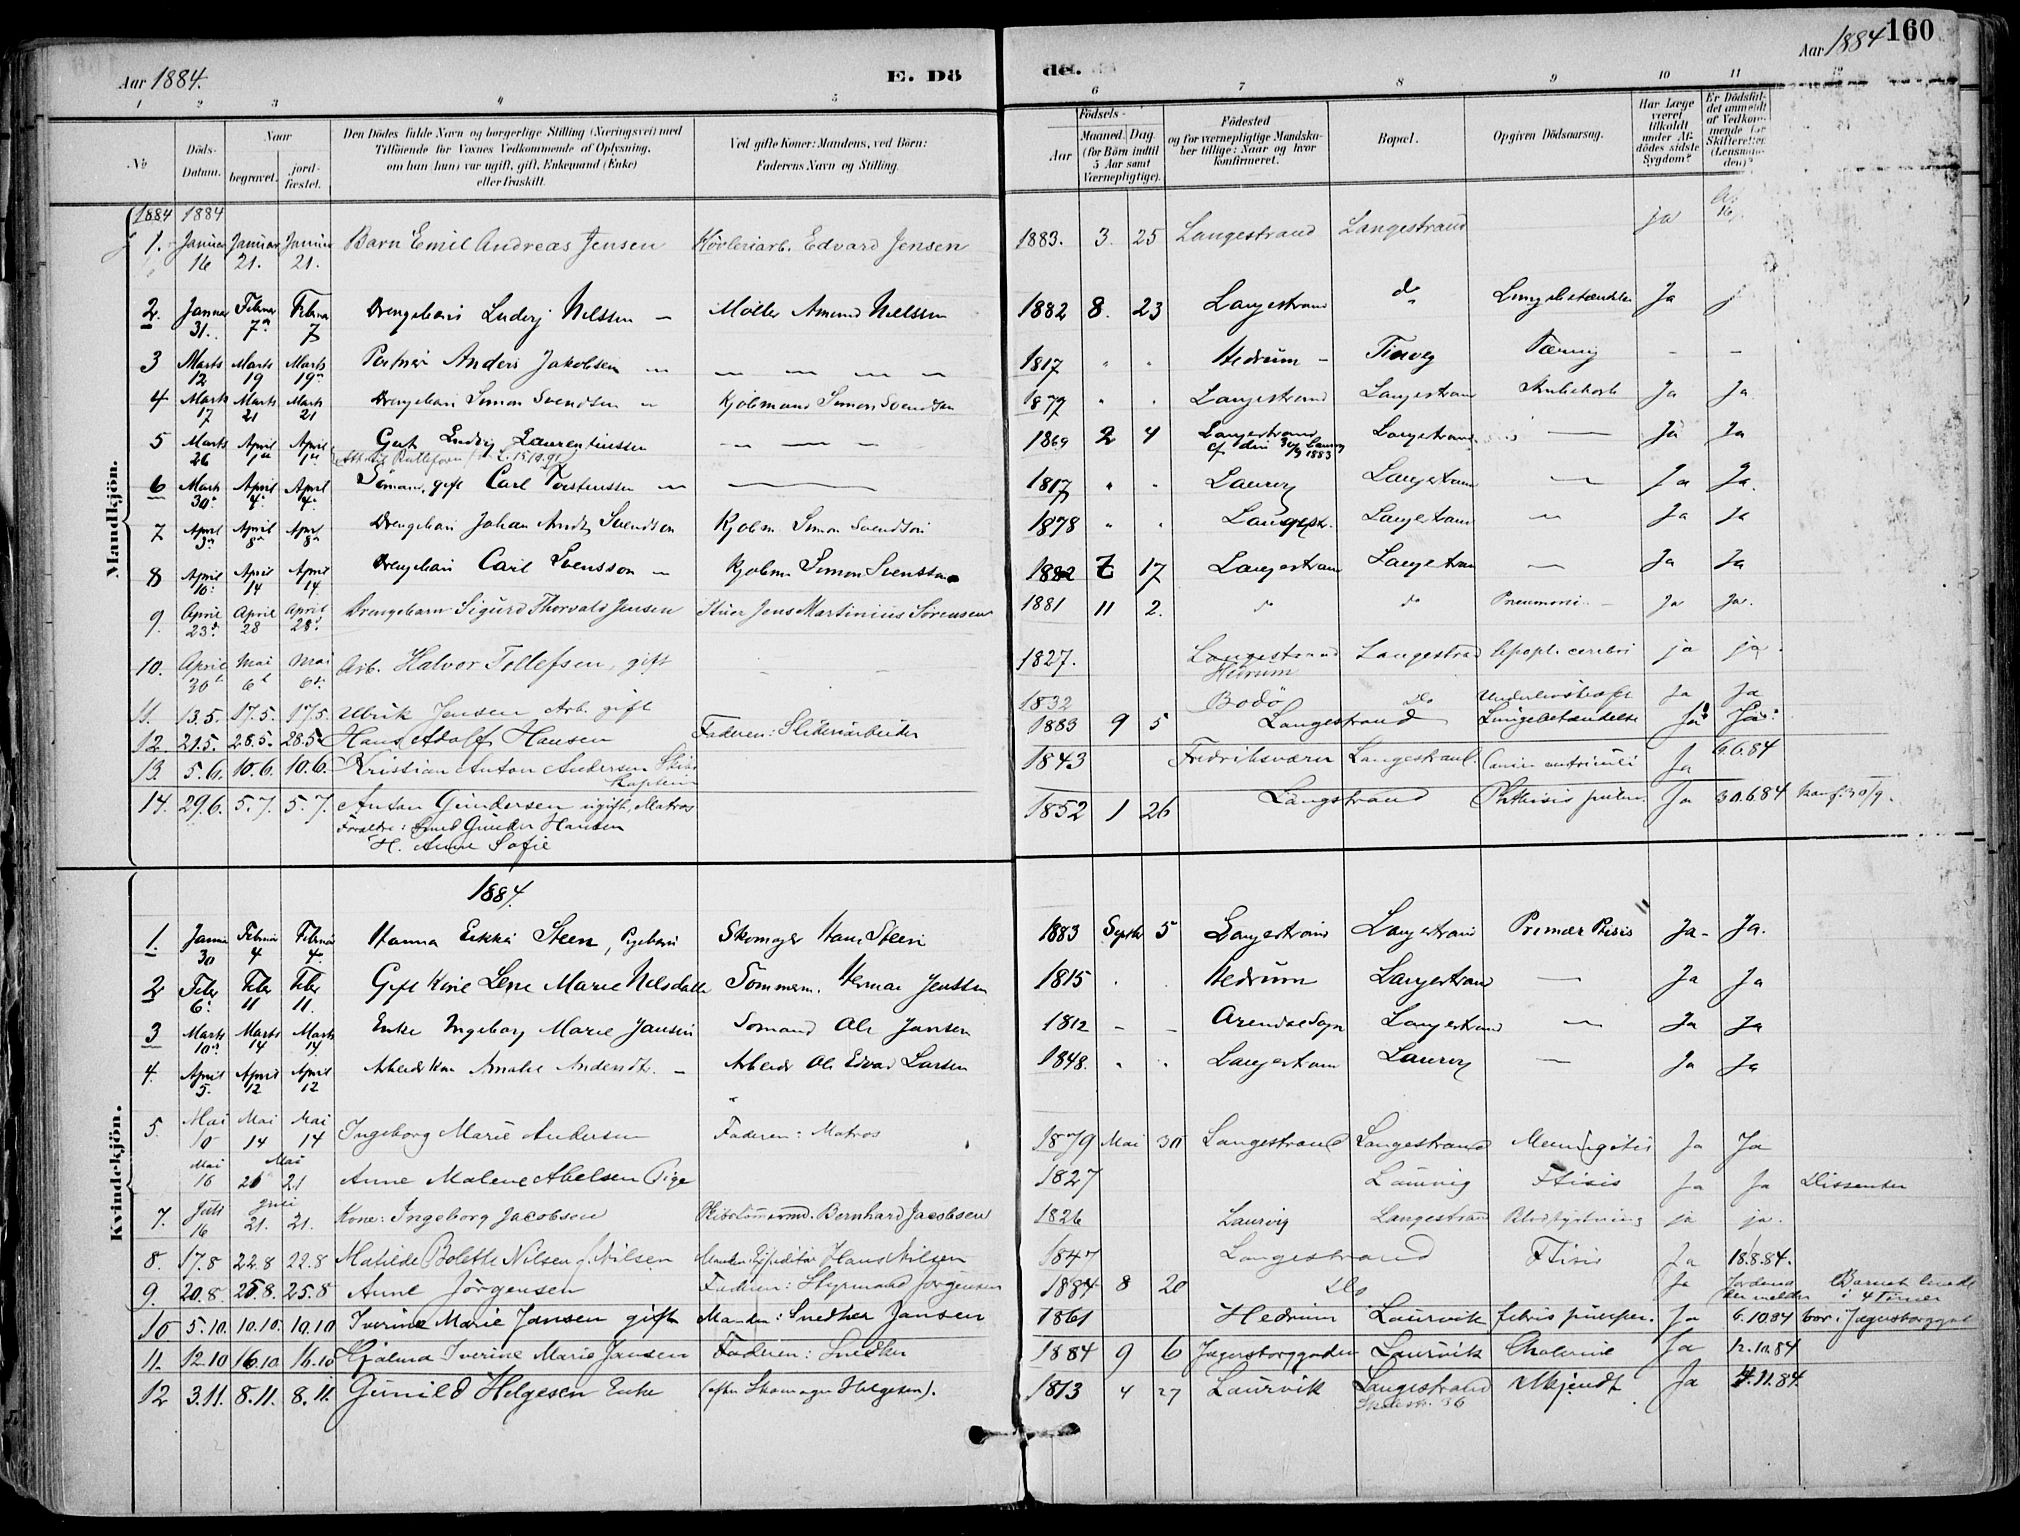 160
Aar 1884.
E. Dö
de.
Aar 1884
1 2 3 4 5 6 7 8 9 10 11 12
No
Döds-Datum.
Naar
begravet.
jordfæstet.
Den Dödes fulde Navn og borgerlige Stilling (Næringsvei) med
Tilföiende for Voxnes Vedkommende af Oplysning,
om han (hun) var ugift, gift, Enkemand (Enke)
eller fraskilt.
Ved gifte Koner: Mandens, ved Börn:
Faderens Navn og Stilling.
Födsels-
Aar
Maaned. Dag.
(for Börn indtil
5 Aar samt
Værnepligtige).
Födested
og for værnepligtige Mandska-
ber tillige: Naar og hvor
konfirmeret.
Bopæl.
Opgiven Dödsaarsag.
Har Læge
været
tilkaldt
under Af-
dödes sidste
Sygdom?
Er Dödsfal-
det anmeldt
af Vedkom-
mende for
Skifteretten
(Lensman-
den)?
Mandkjön.
1884 1884
1. Januar 16 Januar 21. Januar 21. Barn Emil Andreas Jensen Edvard Jensen 1883. 3. 25 Langestrand Langestrand ja
2. Januar 31. Februar 7 Februar 7 Drengebarn Ludvig Nilssen Möller Amund Nilssen 1882 8. 23 Langestrand do Lungebetændelse Ja
3 Marts 12 Marts 19 Marts 19 Anders Jakobsen 1817 Hedrum Tæring
4 Marts 17 Marts 21 Marts 21 Drengebarn Simon Svendsen Simon Svendsen 1877 Langestrand Langestrand Ja Ja
5 Marts 26 April 1 April 1 Gut Ludvig Laurentiussen 1869 2 4 Langestrand Langestrand Ja Ja
6 Marts 30 April 4 April 4 Sömand, gift Carl Torstenssen 1817 Laurvig Langestrand Ja Ja.
7 April 3 April 8 April 8 Drengebarn Johan Arndt Svendsen Simon Svendsen 1878 Langestr. Langestrand Ja Ja
8 April 10 April 14 April 14. Drengebarn Carl Svensson Simon Svensson 1882 7 17 Langestrand Langestrand Ja Ja
9. April 23 April 28 April 28 Drengebarn Sigurd Thorvald Jensen Jens Martinius Sörensen 1881 11 2. do do Pneumoni Ja Ja.
10. April 30 Mai 6 Mai 6 Arb. Halvor Tollefsen, gift 1827. Langestrand Langestrand Apopl. cerebri ja ja
Hedrum
11. 13.5. 17.5. 17.5. Ulrik Jensen Arb. gift 1832 Bodö Do Ja Ja
12. 21.5. 28.5. 28.5 Hans Adolf Hansen Faderen: Sliberiarbeider 1883 9 5 Langestrand Lungebetændelse Ja Ja
13. 5.6. 10.6. 10.6. Kristian Anton Andersen Skibs 1843 Fredriksværn Langestrand. Ja 6.6.84
Kaptein
14. 29.6. 5.7. 5.7. Anton Gundersen ugift, Matros 1852 1 26 Langstrand Phthisis pulm. Ja 30.6.84
Forældre: Smed Gunder Hansen
H. Anne Sofie
Kvindekjön.
1884.
1. Januar 30 Februar 4 Februar 4. Hanna Steen, Pigebarn Skomager Hans Steen 1883 Septbr 5 Langestrand Langestrand Ja Ja.
2 Feber 6. Feber 11 Feber 11. Gift Kone Lene Marie Nilsdatter Tömmerm. Herman Jensen 1815 Hedrum Langestrand Ja Ja
3 Marts 10 Marts 14 Marts 14 Enke Ingeborg Marie Jansen Sömand Ole Jansen 1812 Langestrand Ja Ja
4. April 5. April 12 April 12 Amalie Andersdtr. Arbeider Ole Edvard Larsen 1848. Langestrand Laurvig Ja Ja
5. Mai 10 Mai 14 Mai 14 Ingeborg Marie Andersen Faderen: Matros 1879 Mai 30 Langestrand Langestrand Meningitis Ja Ja
Mai 16 Mai 21 21 Anne Malene Abelsen Pige 1827 Laurvig Ftisis Ja Ja Dissenter
7. Juni 16 Juni 21. 21. Kone: Ingeborg Jacobsen Skibstömmermd. Bernhard Jacobsen 1826 Laurvig Langestrand Blodstyrtning ja ja.
8. 17.8 22.8 22.8 Matilde Bolette Nilsen f. Nilsen Manden: Expeditör Hans Nilsen 1847 Langestrand Ftisis Ja 18.8.84.
9. 20.8. 25.8. 25.8 Anne Jörgensen Faderen: Styrmand Jörgensen 1884 8 20 Do Ja Jordemoderen melder Barnet levede i 4 Timer
10 5.10. 10.10. 10.10 Iverine Marie Jansen gift Manden: Snedker Jansen 1861 Hedrum Laurvik febris puerper. Ja 6.10.84 bor i Jegersborggd.
11. 12.10 16.10. 16.10 Hjalma Iverine Marie Jansen Faderen: Snedker 1884 9 6 Jegersborggaden Laurvik Cholerine Ja 12.10.84
12 3.11. 8.11. 8.11. Gunild Helgesen Enke (efter Skomager Helgesen). 1813 4 27 Laurvik Langestrand Ukjendt Ja 4.11.84.